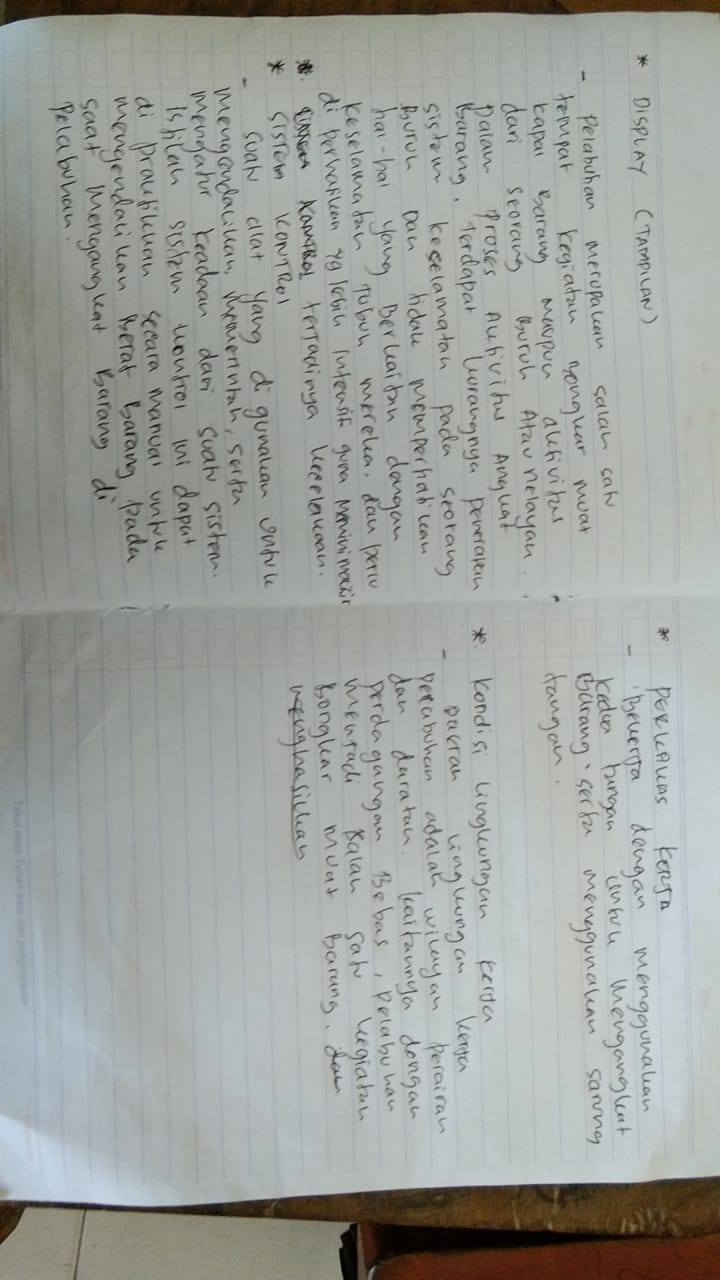 * DISPLAY (TAMPILAN)
- Pelabuhan merupakan salah satu
tempat kegiatan bongkar muat
kapal barang maupun aktivitas
dari seorang buruh Atau nelayan.
Dalam proses Aktivitas Angkat
Barang, terdapat kurangnya penerapan
sistem keselamatan pada seorang
Buruh Dan tidak memperhatikan
hal-hal yang Berkaitan dengan
keselamatan tubuh mereka, dan perlu
di perhatikan yg lebih intensif guna meminimalir
terjadinya kecelakaan.
* SISTEM KONTROL
- Suatu alat yang di gunakan untuk
mengendalikan, memerintah, serta
mengatur keadaan dari suatu sistem.
Istilah sistem kontrol ini dapat
di praktikkan secara manual untuk
mengendalikan Berat Barang pada
saat mengangkat Barang di
Pelabuhan.
* PERKAKAS KERJA
- Bekerja dengan menggunakan
kedua tangan untuk mengangkat
Barang. serta menggunakan sarung
tangan.
* Kondisi lingkungan kerja
- Dalam lingkungan kerja
pelabuhan adalah wilayah perairan
dan daratan. kaitannya dengan
perdagangan Bebas, pelabuhan
menjadi salah satu kegiatan
Bongkar muat Barang. dan
menghasilkan